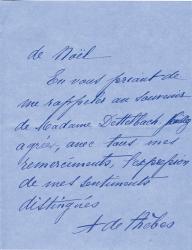 de Noël
En vous priant de
me rappeler au souvenir
de Madame Dettelbach
agréez, avec tous mes
remerciements, l'expression
de mes sentiments
distingués
A de Thèbes